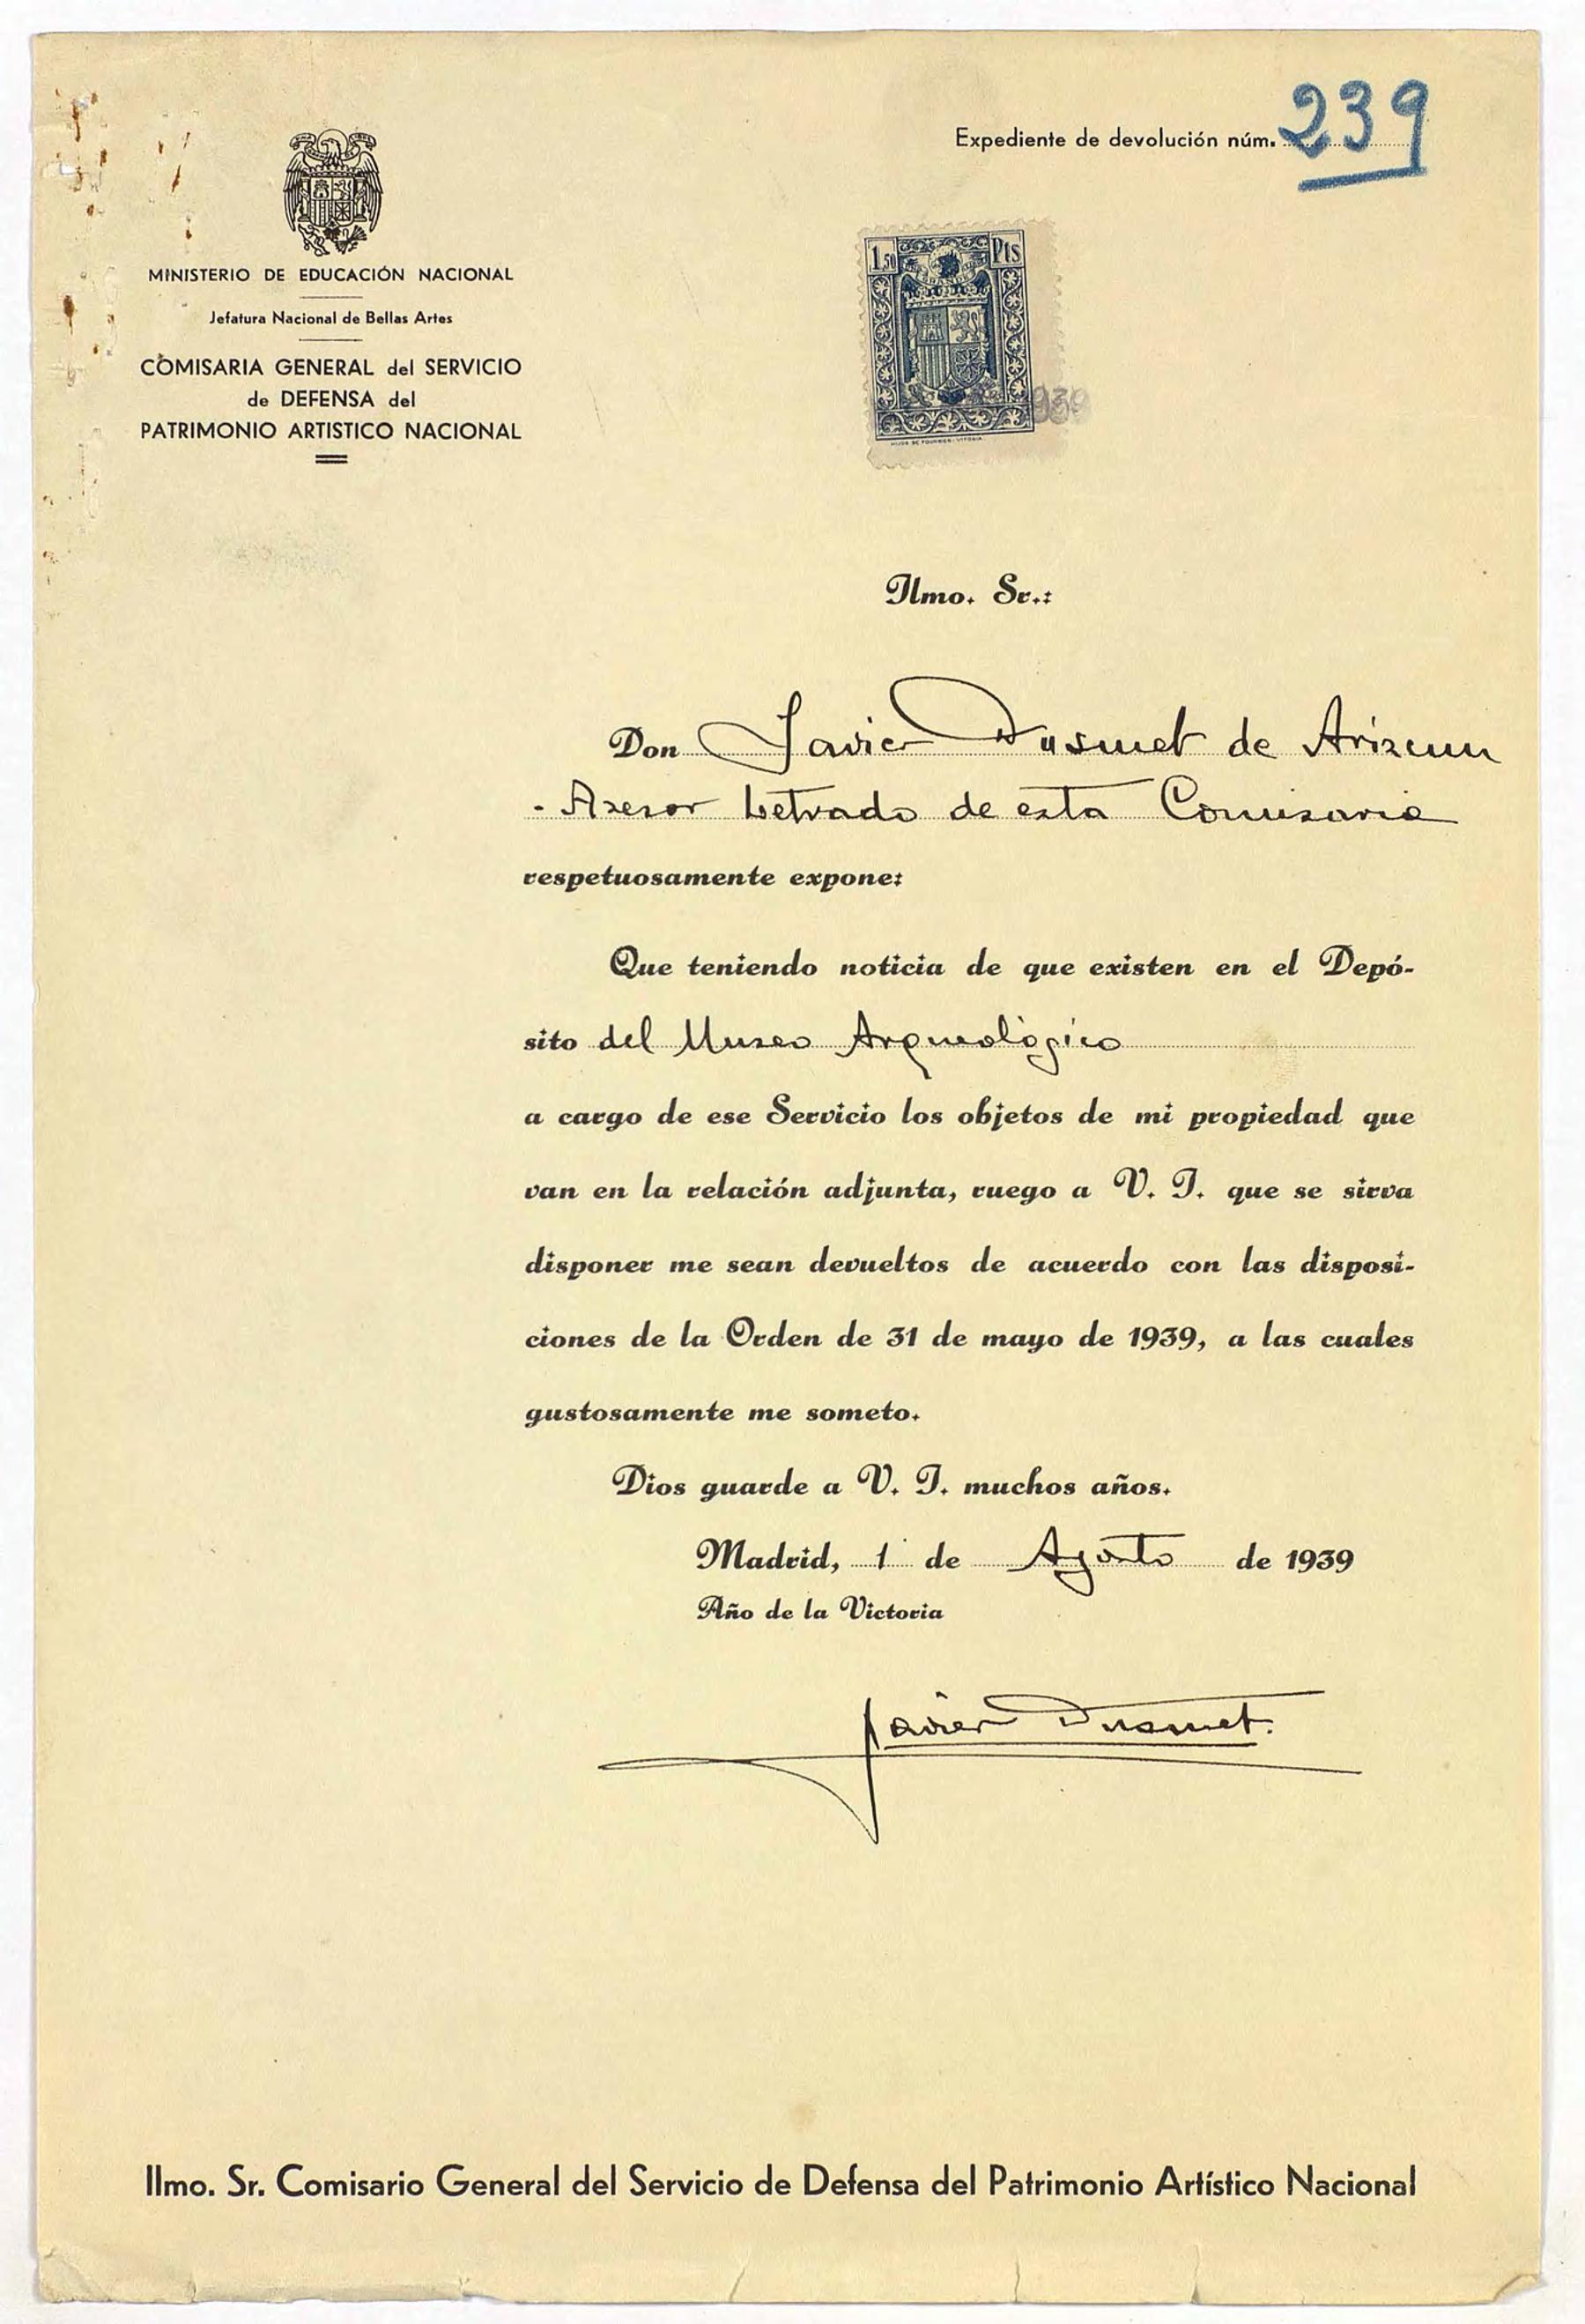 Expediente de devolución núm. 239
MINISTERIO DE EDUCACIÓN NACIONAL
Jefatura Nacional de Bellas Artes
COMISARIA GENERAL del SERVICIO
de DEFENSA del
PATRIMONIO ARTISTICO NACIONAL
1,50 Pts
HIJOS DE FOURNIER - VITORIA
939
Ilmo. Sr.:
Don Javier Dusmet de Arizcun
- Asesor Letrado de esta Comisaria
respetuosamente expone:
Que teniendo noticia de que existen en el Depó-
sito del Museo Arqueológico
a cargo de ese Servicio los objetos de mi propiedad que
van en la relación adjunta, ruego a V. I. que se sirva
disponer me sean devueltos de acuerdo con las disposi-
ciones de la Orden de 31 de mayo de 1939, a las cuales
gustosamente me someto.
Dios guarde a V. I. muchos años.
Madrid, 1 de Agosto de 1939
Año de la Victoria
Javier Dusmet.
Ilmo. Sr. Comisario General del Servicio de Defensa del Patrimonio Artístico Nacional